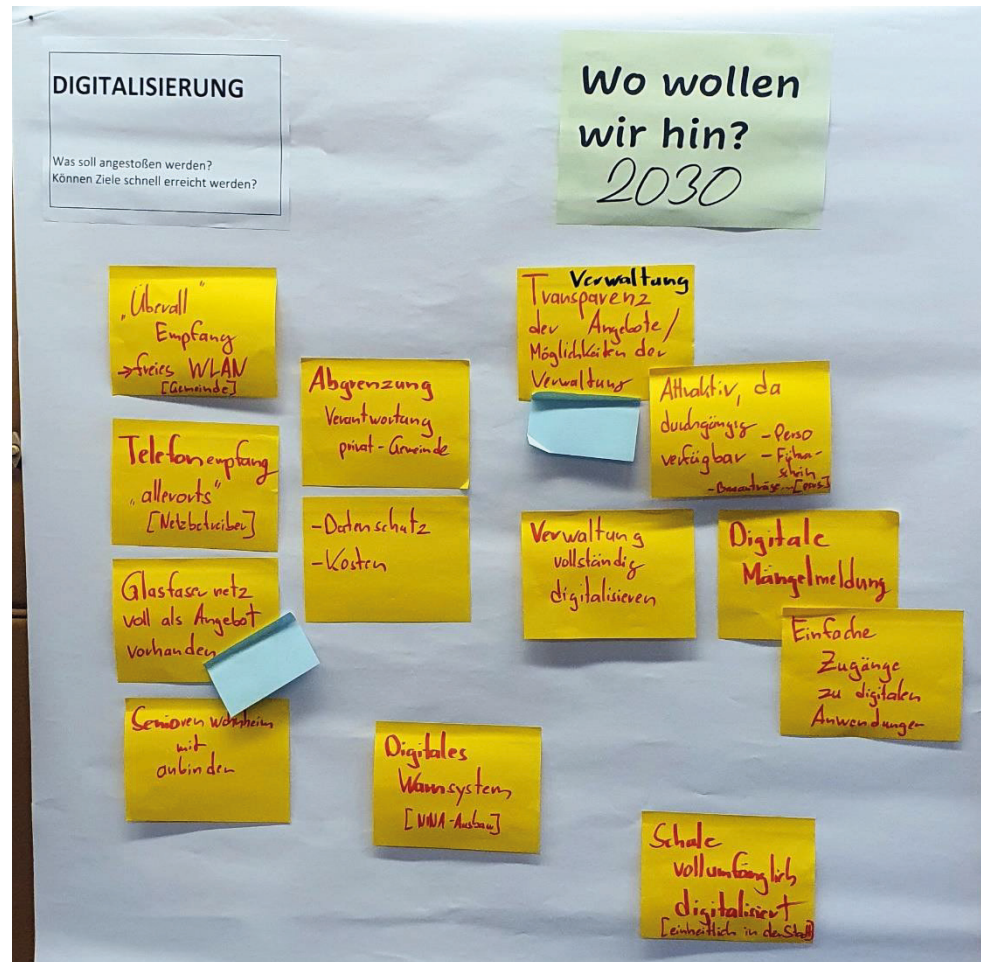 DIGITALISIERUNG
Was soll angestoßen werden?
Können Ziele schnell erreicht werden?
Wo wollen
wir hin?
2030
„Überall"
Empfang
→freies WLAN
[Gemeinde]
Telefonempfang
„allerorts"
[Netzbetreiber]
Glasfasernetz
voll als Angebot
vorhanden
Senioren Wohnheim
mit
anbinden
Abgrenzung
Verantwortung
privat-Gemeinde
-Datenschutz
-Kosten
Digitales
Warnsystem
[NINA-Ausbau]
Verwaltung
Transparenz
der Angebote/
Möglichkeiten der
Verwaltung
Attraktiv, da
durchgängig
verfügbar
-Perso
-Führer-
schein
-Bauanträge
Verwaltung
vollständig
digitalisieren
Digitale
Mängelmeldung
Einfache
Zugänge
zu digitalen
Anwendungen
Schule
vollumfänglich
digitalisiert
[einheitlich in der Stadt]